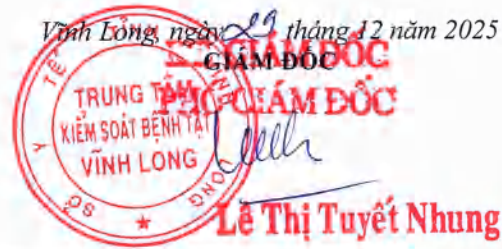 Vĩnh Long, ngày 29 tháng 12 năm 2025
KT. GIÁM ĐỐC
GIÁM ĐỐC
PHÓ GIÁM ĐỐC
SỞ Y TẾ TỈNH VĨNH LONG
TRUNG TÂM
KIỂM SOÁT BỆNH TẬT
VĨNH LONG
Lê Thị Tuyết Nhung